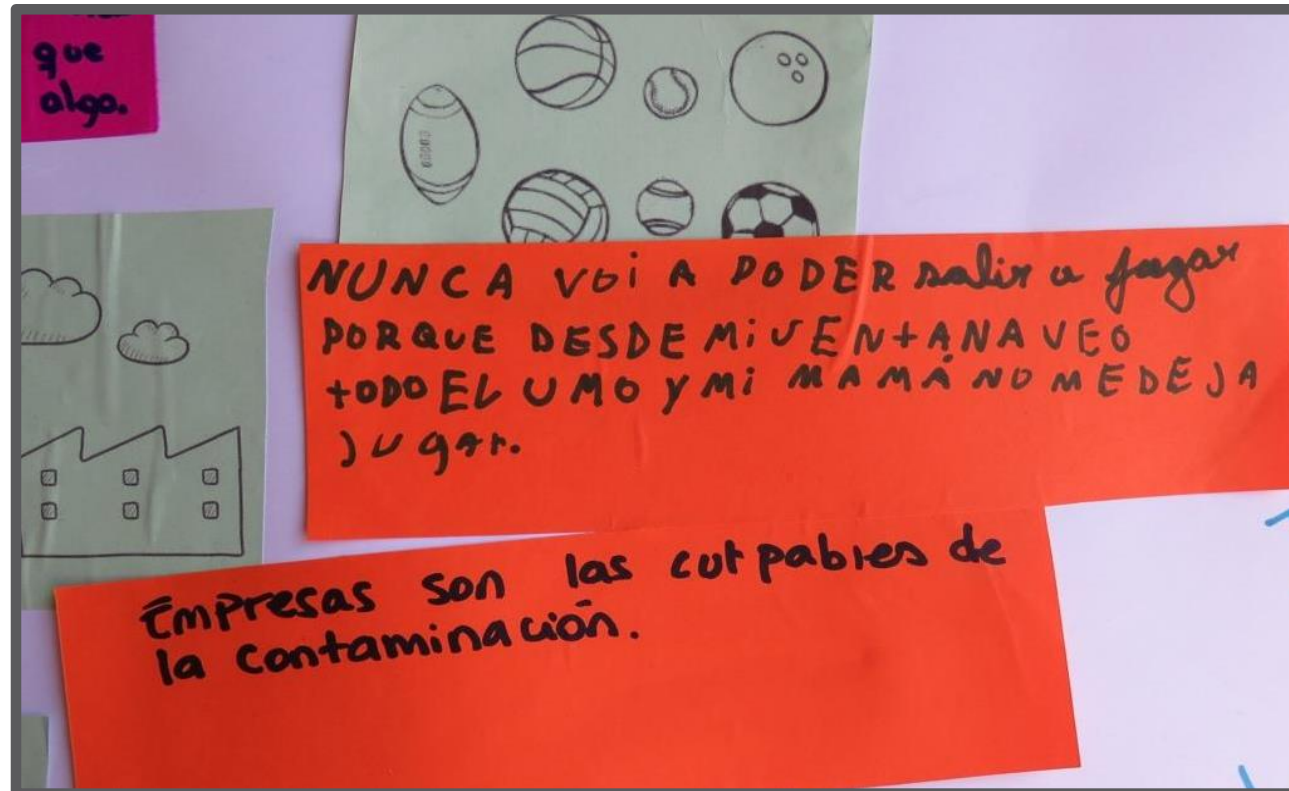 que
algo.
NUNCA VOi A PODER salir a jugar
PORQUE DESDE Mi VENTANA VEO
TODO EL UMO Y Mi MAMÁ NO ME DEJA
JUgAr.
Empresas son las culpables de
la contaminación.